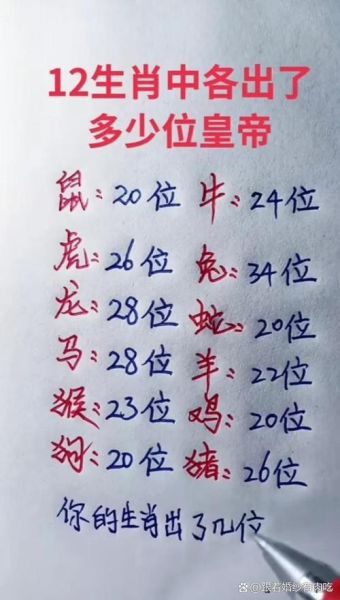 12生肖中各出了
多少位皇帝
鼠:20位 牛:24位
虎:26位 兔:34位
龙:28位 蛇:20位
马:28位 羊:22位
猴:23位 鸡:20位
狗:20位 猪:26位
你的生肖出了几位
@跟着婚纱有肉吃